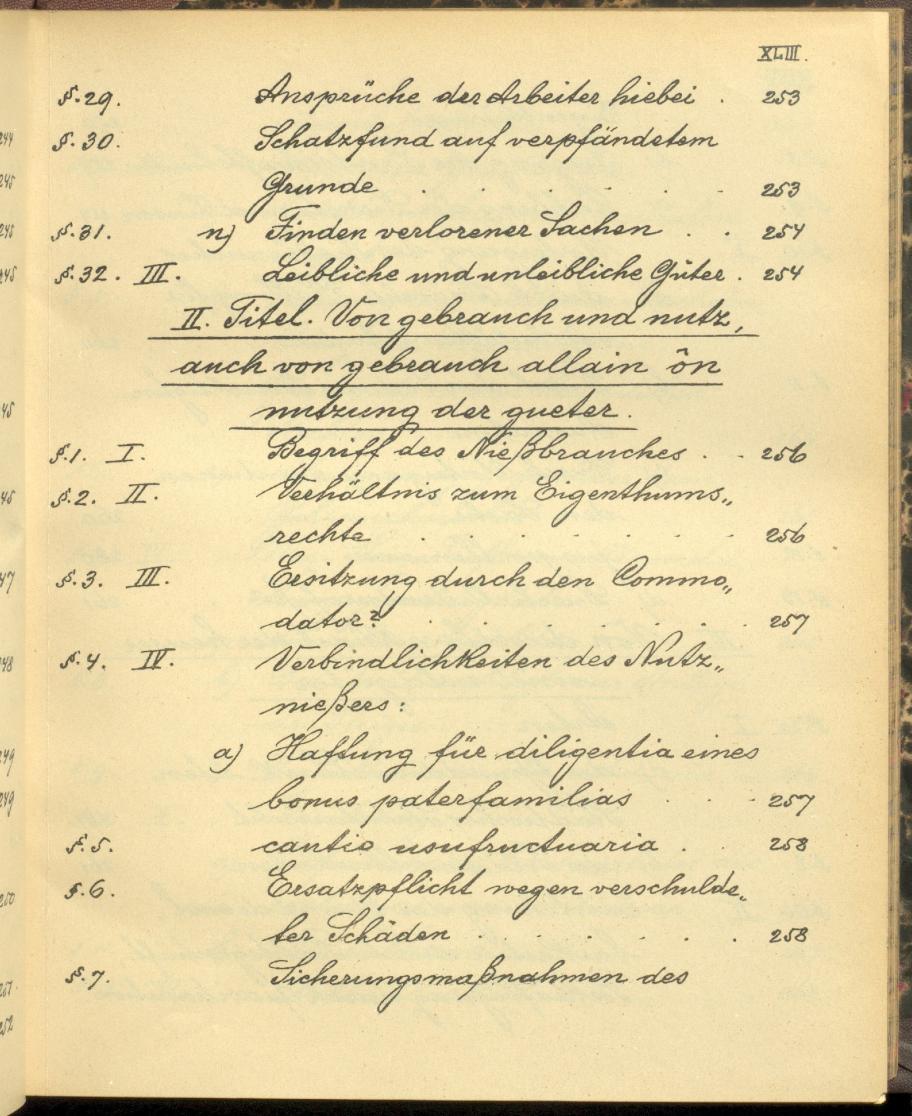 XLIII.
§. 29. Ansprüche der Arbeiter hiebei . 253
§. 30. Schatzfund auf verpfändetem
Grunde . . . . . . 253
§. 31. n) Finden verlorener Sachen . . 254
§. 32. III. Leibliche und unleibliche Güter . 254
II. Titel. Von gebrauch und nutz,
auch von gebrauch allain ôn
nutzung der gueter.
§. 1. I. Begriff des Nießbrauches . . 256
§. 2. II. Verhältnis zum Eigenthums„
rechte . . . . . . 256
§. 3. III. Ersitzung durch den Commo„
dator? . . . . . . 257
§. 4. IV. Verbindlichkeiten des Nutz„
nießers:
a) Haftung für diligentia eines
bonus paterfamilias . . . 257
§. 5. cautio usufructuaria . . 258
§. 6. Ersatzpflicht wegen verschulde„
ter Schäden . . . . . 258
§. 7. Sicherungsmaßnahmen des
244
245
245
245
245
245
247
248
249
249
250
251.
252